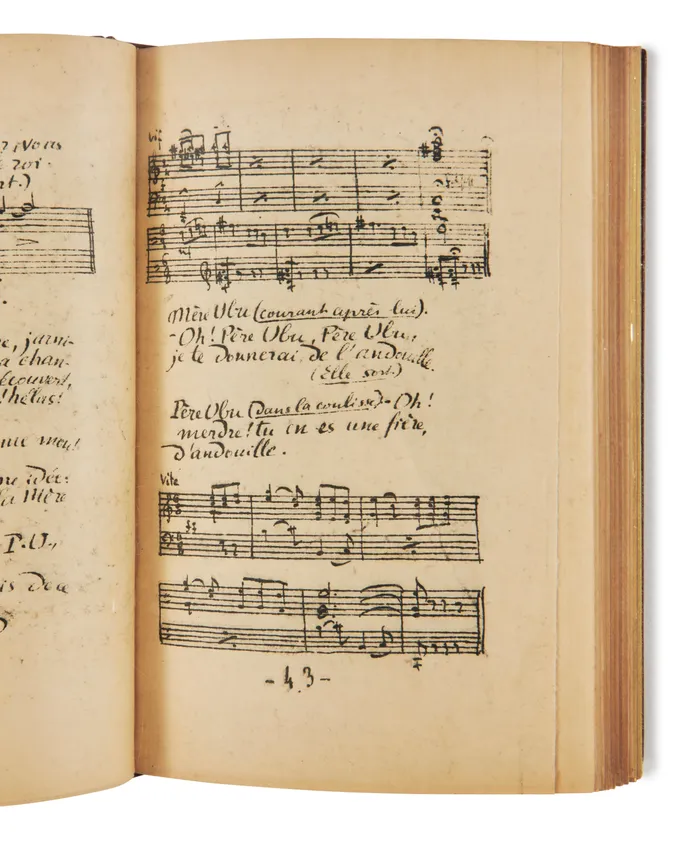 Nous
roi.
Vif
jarni-
a chan-
découvert,
! hélas!
P.U.,
Mère Ubu (courant après lui).
- Oh! Père Ubu, Père Ubu,
je te donnerai de l'andouille.
(Elle sort.)
Père Ubu (Dans la coulisse) - Oh!
merdre! tu en es une fière,
D'andouille.
Vite
- 43 -